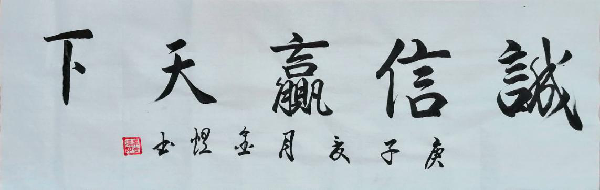 誠信贏天下
庚子夏月金煜书